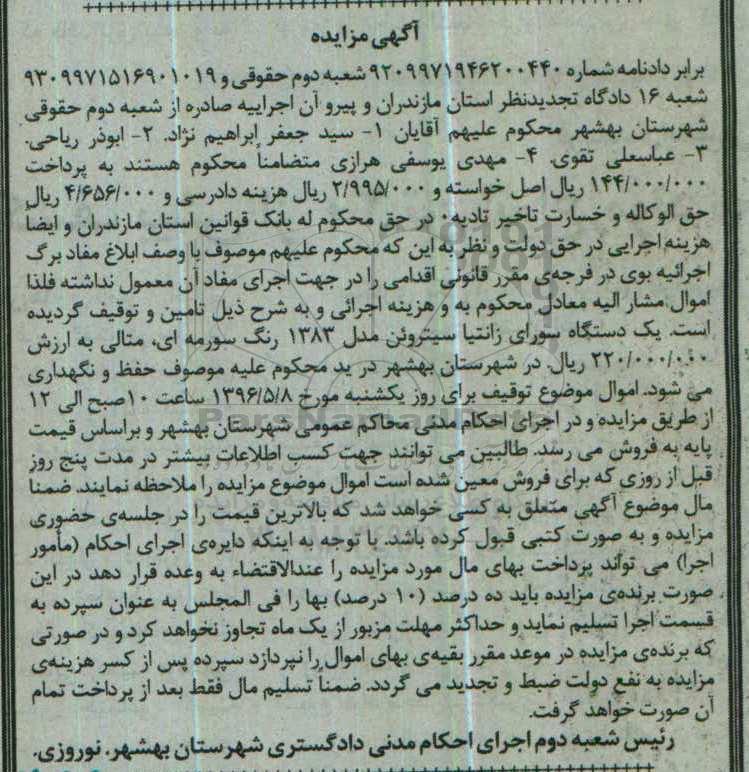 آگهی مزایده
برابر دادنامه شماره ۹۲۰۹۹۷۱۹۴۶۲۰۰۴۴۰ شعبه دوم حقوقی و ۹۳۰۹۹۷۱۵۱۶۹۰۱۰۱۹
شعبه ۱۶ دادگاه تجدیدنظر استان مازندران و پیرو آن اجراییه صادره از شعبه دوم حقوقی
شهرستان بهشهر محکوم علیهم آقایان ۱- سید جعفر ابراهیم نژاد. ۲- ابوذر ریاحی.
۳- عباسعلی تقوی. ۴- مهدی یوسفی هرازی متضامناً محکوم هستند به پرداخت
۱۴۴/۰۰۰/۰۰۰ ریال اصل خواسته و ۲/۹۹۵/۰۰۰ ریال هزینه دادرسی و ۴/۶۵۶/۰۰۰ ریال
حق الوکاله و خسارت تاخیر تادیه۰ در حق محکوم له بانک قوانین استان مازندران و ایضاً
هزینه اجرایی در حق دولت و نظر به این که محکوم علیهم موصوف با وصف ابلاغ مفاد برگ
اجرائیه بوی در فرجه‌ی مقرر قانونی اقدامی را در جهت اجرای مفاد آن معمول نداشته فلذا
اموال مشار الیه معادل محکوم به و هزینه اجرائی و به شرح ذیل تامین و توقیف گردیده
است. یک دستگاه سورای زانتیا سیتروئن مدل ۱۳۸۳ رنگ سورمه ای، متالی به ارزش
۲۲۰/۰۰۰/۰۰۰ ریال. در شهرستان بهشهر در ید محکوم علیه موصوف حفظ و نگهداری
می شود. اموال موضوع توقیف برای روز یکشنبه مورخ ۱۳۹۶/۵/۸ ساعت ۱۰صبح الی ۱۲
از طریق مزایده و در اجرای احکام مدنی محاکم عمومی شهرستان بهشهر و براساس قیمت
پایه به فروش می رسد. طالبین می توانند جهت کسب اطلاعات بیشتر در مدت پنج روز
قبل از روزی که برای فروش معین شده است اموال موضوع مزایده را ملاحظه نمایند. ضمنا
مال موضوع آگهی متعلق به کسی خواهد شد که بالاترین قیمت را در جلسه‌ی حضوری
مزایده و به صورت کتبی قبول کرده باشد. با توجه به اینکه دایره‌ی اجرای احکام (مأمور
اجرا) می تواند پرداخت بهای مال مورد مزایده را عندالاقتضاء به وعده قرار دهد در این
صورت برنده‌ی مزایده باید ده درصد (۱۰ درصد) بها را فی المجلس به عنوان سپرده به
قسمت اجرا تسلیم نماید و حداکثر مهلت مزبور از یک ماه تجاوز نخواهد کرد و در صورتی
که برنده‌ی مزایده در موعد مقرر بقیه‌ی بهای اموال را نپردازد سپرده پس از کسر هزینه‌ی
مزایده به نفع دولت ضبط و تجدید می گردد. ضمنا تسلیم مال فقط بعد از پرداخت تمام
آن صورت خواهد گرفت.
رئیس شعبه دوم اجرای احکام مدنی دادگستری شهرستان بهشهر. نوروزی.